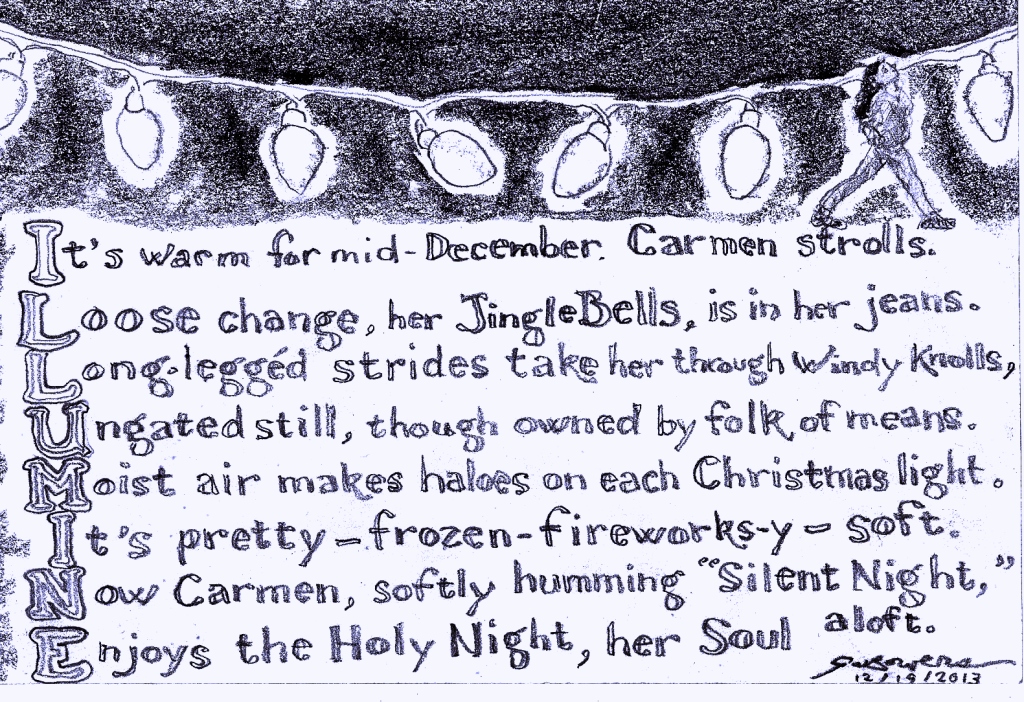 It's warm for mid-December. Carmen strolls.
Loose change, her JingleBells, is in her jeans.
Long-leggéd strides take her through Windy Knolls,
Ungated still, though owned by folk of means.
Moist air makes haloes on each Christmas light.
It's pretty – frozen-fireworks-y – soft.
Now Carmen, softly humming "Silent Night,"
Enjoys the Holy Night, her Soul aloft.
12/19/2013